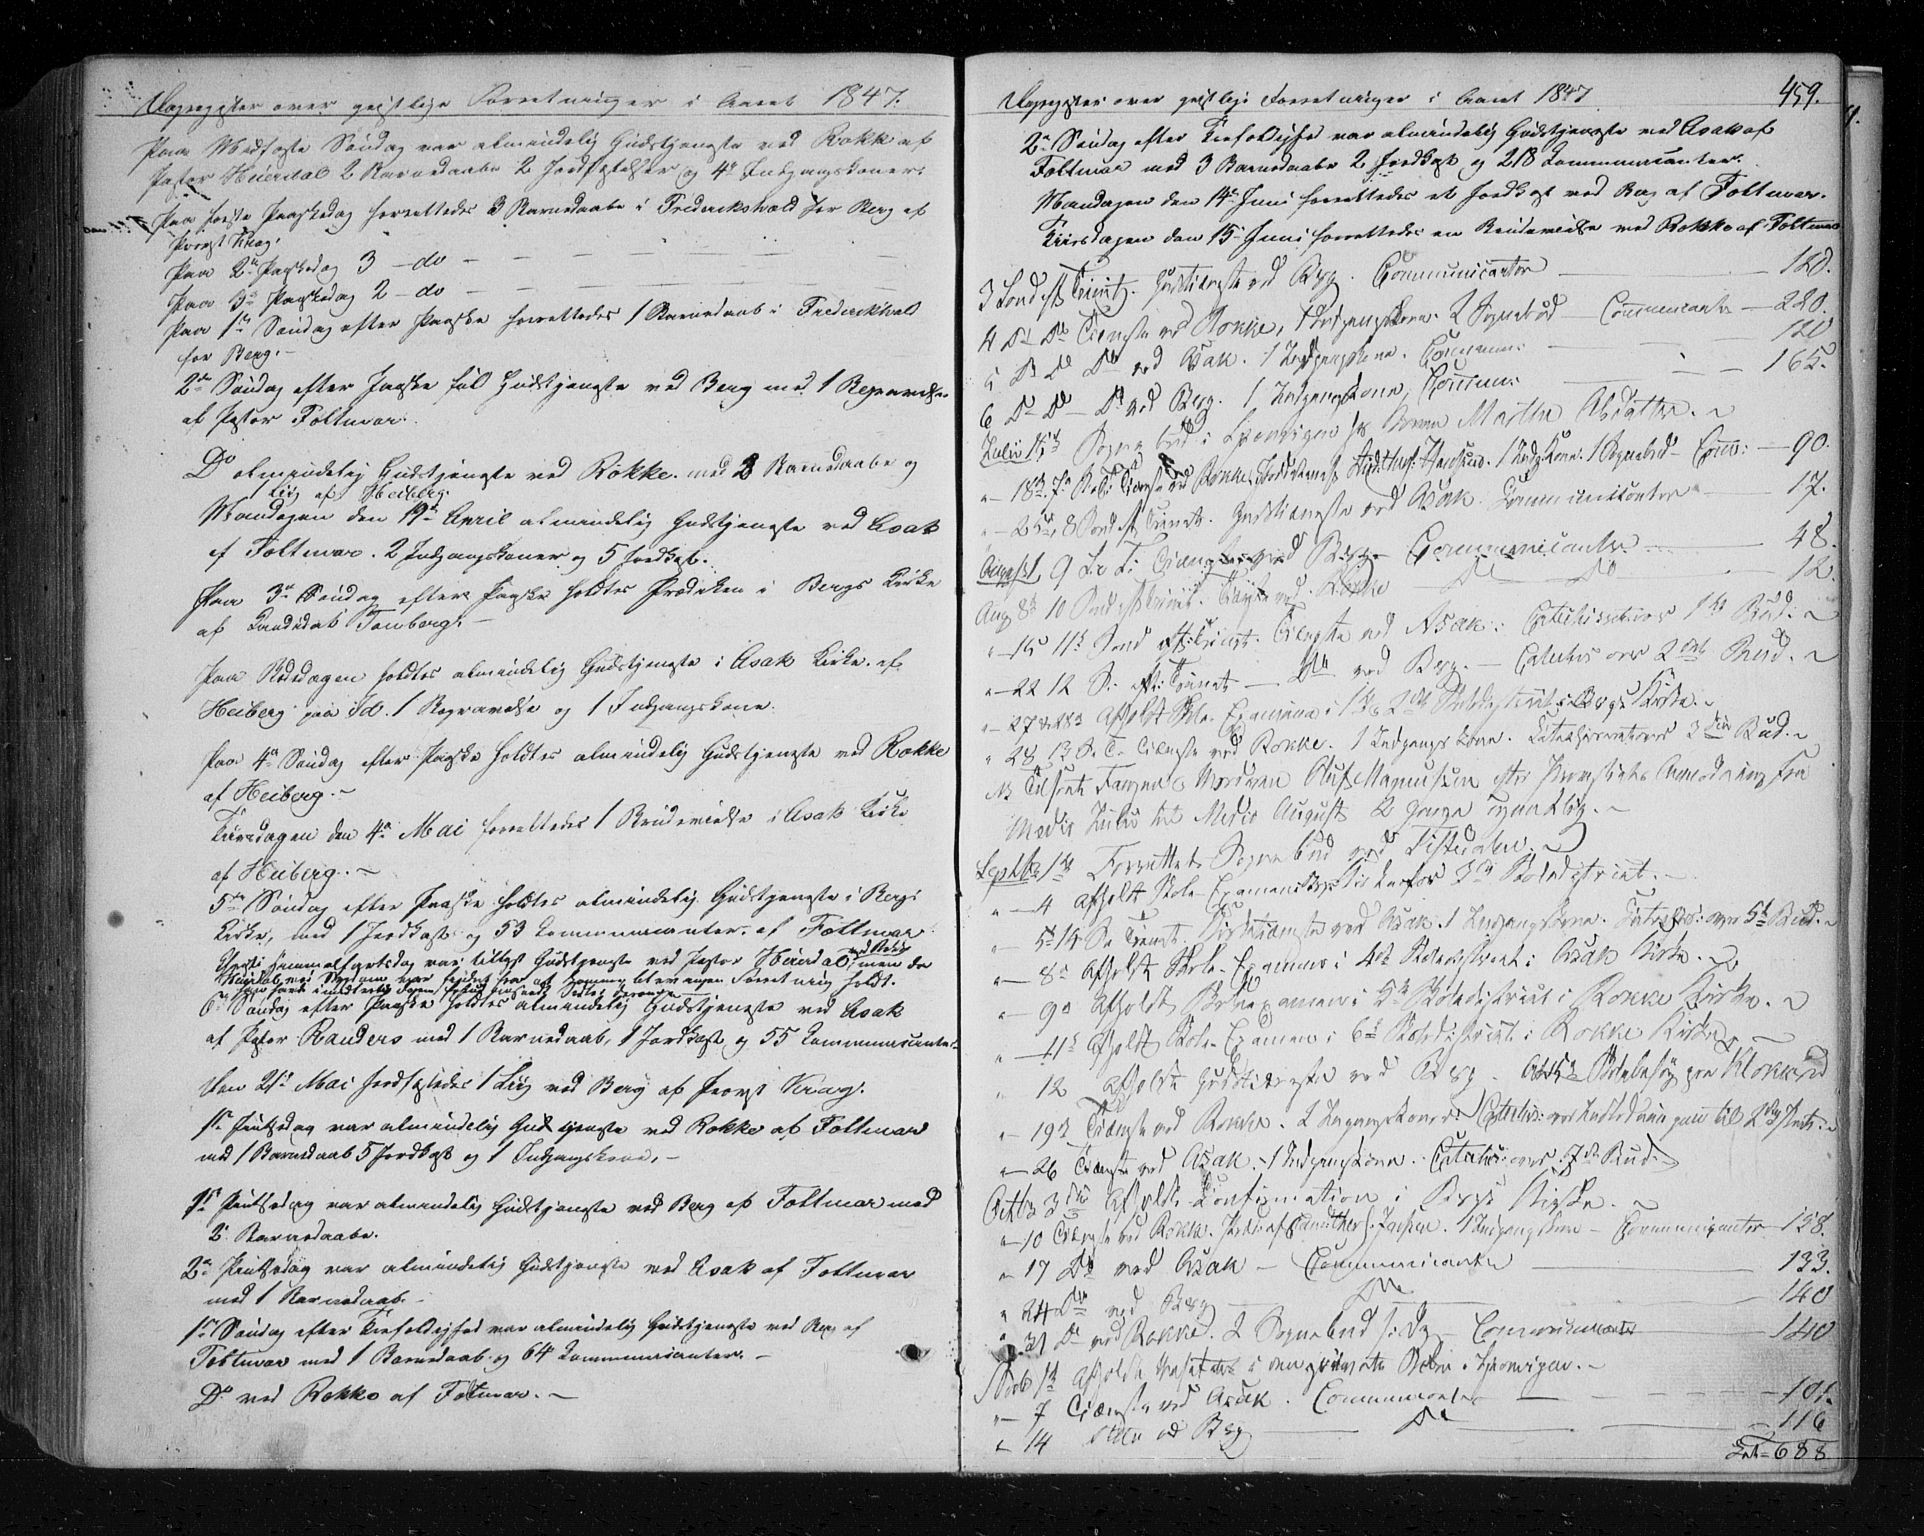 Dagregister over geistlige Forretninger i Aaret 1847.
Paa Midfaste Søndag var almindelig Gudstjeneste ved Rokke af
Pastor Heierdal 2 Barnedaabe 2 Jordfæstelser og 4 Indgangskoner.
Paa første Paaskedag forrettedes 3 Barnedaabe i Frederikshald for Berg af
Provst Krag.
Paa 2den Paaskedag 3 – do –
Paa 3die Paaskedag 2 – do –
Paa 1ste Søndag efter Paaske forrettedes 1 Barnedaab i Frederikshald
for Berg. –
2den Søndag efter Paaske fuld Gudstjeneste ved Berg med 1 Begravelse
af Pastor Foltmar.
Do almindelig Gudstjeneste ved Rokke med 2 Barnedaabe og
Liig af Heiberg.
Mandagen den 19de April almindelig Gudstjeneste ved Asak
af Foltmar. 2 Indgangskoner og 5 Jordkast.
Paa 3die Søndag efter Paaske holdtes Prædiken i Bergs Kirke
af Candidat Tonberg. –
Paa Bededagen holdtes almindelig Gudstjeneste i Asak Kirke af
Heiberg paa Id. 1 Begravelse og 1 Indgangskone.
Paa 4de Søndag efter Paaske holdtes almindelig Gudstjeneste ved Rokke
af Heiberg. –
Tiirsdagen den 4de Mai forrettedes 1 Brudevielse i Asak Kirke
af Heiberg. –
5te Søndag efter Paaske holdtes almindelig Gudstjeneste i Bergs
Kirke, med 1 Jordkast og 53 Communicanter af Foltmar
Christi Himmelfartsdag var tillyst Gudstjeneste ved Pastor Heierdal ved Rokke men da
Heierdal ved Sygdom var hindret fra at komme blev ingen Forretning holdt.
6te Søndag efter Paaske holdtes almindelig Gudstjeneste ved Asak
af Pastor Randers med 1 Barnedaab, 1 Jordkast og 55 Communicanter.
Den 21de Mai Jordfæstedes 1 Liig ved Berg af Provst Krag.
1ste Pintsedag var almindelig Gudstjeneste ved Rokke af Foltmar
med 1 Barnedaab 5 Jordkast og 1 Indgangskone. –
1ste Pintsedag var almindelig Gudstjeneste ved Berg af Foltmar med
2 Barnedaabe.
2den Pintsedag var almindelig Gudstjeneste ved Asak af Foltmar
med 1 Barnedaab. –
1ste Søndag efter Trefoldighed var almindelig Gudstjeneste ved Berg af
Foltmar med 1 Barnedaab og 64 Communicanter. –
Do ved Rokke af Foltmar. –
Dagregister over geistlige Forretninger i Aaret 1847
459.
2den Søndag efter Trefoldighed var almindelig Gudstjeneste ved Asak af
Foltmar med 3 Barnedaabe 2 Jordkast og 218 Communicanter.
Mandagen den 14de Juni forrettedes et Jordkast ved Berg af Foltmar.
Tiirsdagen den 15de Juni forrettedes en Brudevielse ved Rokke af Foltmar
3 Sond. eft. Trinit. Gudstieneste ved Berg. Communicanter – 120.
4 Do Do Tieneste ved Rokke, 1 Indgangskone. 2 Sognebud – Communicanter – 220.
5 Do Do Do ved Asak. 1 Indgangskone. Commun: – 120
6 Do Do – Do ved Berg. 1 Indgangskone, Commun: – 165.
Julii 15de Sognebud i Sponvigen hos Konen Marthe Olsdatter.
" 18de 7de Tieneste ved Rokke, 1 Indg.Kone. 1 Sognebud – Com: – 90.
" – 25de 8 Sond. eft. Trinit. Gudstieneste ved Asak. Communicanter – 17.
August 1 9 Do Do Tieneste ved Berg – Communicanter – 48.
Aug 8de 10 Sond. eft. Trinit. Tieneste ved Rokke Do Do – 12.
" – 15 11te Sond eft: Trinit. Tieneste ved Asak: Catechisation over 1ste Bud.
" – 22 12 S. eft: Trinit – Do ved Berg. – Catechis over 2det Bud.
" – 27 & 28de afholdt Skole-Examen i 1ste & 2det Skoledistrict i Bergs Kirke.
" 28 13 S. Tr. Tieneste ved Rokke. 1 Indgangs Kone. Catechisation over 3die Bud.
NB Tilseet Fangen Oluf Magnussen efter Provstiets Anmodning fra
Medio Julii til Medio August 2 Gange ugentlig. –
Septbr 1ste Forrettet Sognebud ved Tistedalen.
" – 4 afholdt Skole-Examen i Bergs Kirke for 3die Skoledistrict. –
" – 5te 14 S. Trinit. Gudstieneste ved Asak. 1 Indgangskone. Catechis: over 5te Bud.
" – 8de afholdt Skole-Examen i 4de Skoledistrict i Asak Kirke.
" – 9de Afholdt Skoleexamen i 5te Skoledistrict i Rokke Kirke.
" – 11te Afholdt Skole-Examen i 6te Skoledistrict i Rokke Kirke.
" 12 afholdt Gudstieneste ved Berg.
" – 19de Tieneste ved Rokke. 2 Indgangskoner.
" – 26 Tieneste ved Asak. 1 Indgangskone. Catechis: over 7de Bud.
Octbr 3die Afholdt Confirmation i Bergs Kirke.
" – 10 Tieneste ved Rokke. 1 Indgangskone – Communicanter – 158.
" – 17 Do ved Asak – Communicanter – 133.
" 24 Do ved Berg – Do – 140
" 31 Do ved Rokke. 2 Sognebud s: D. Communicanter – 140
Novbr 1ste Afholdt i den private Skole i Sponvigen. –
" – 7 Tieneste ved Asak. Communicanter – 101.
" – 14 ditto ved Berg – Do – 116
Lat. 688